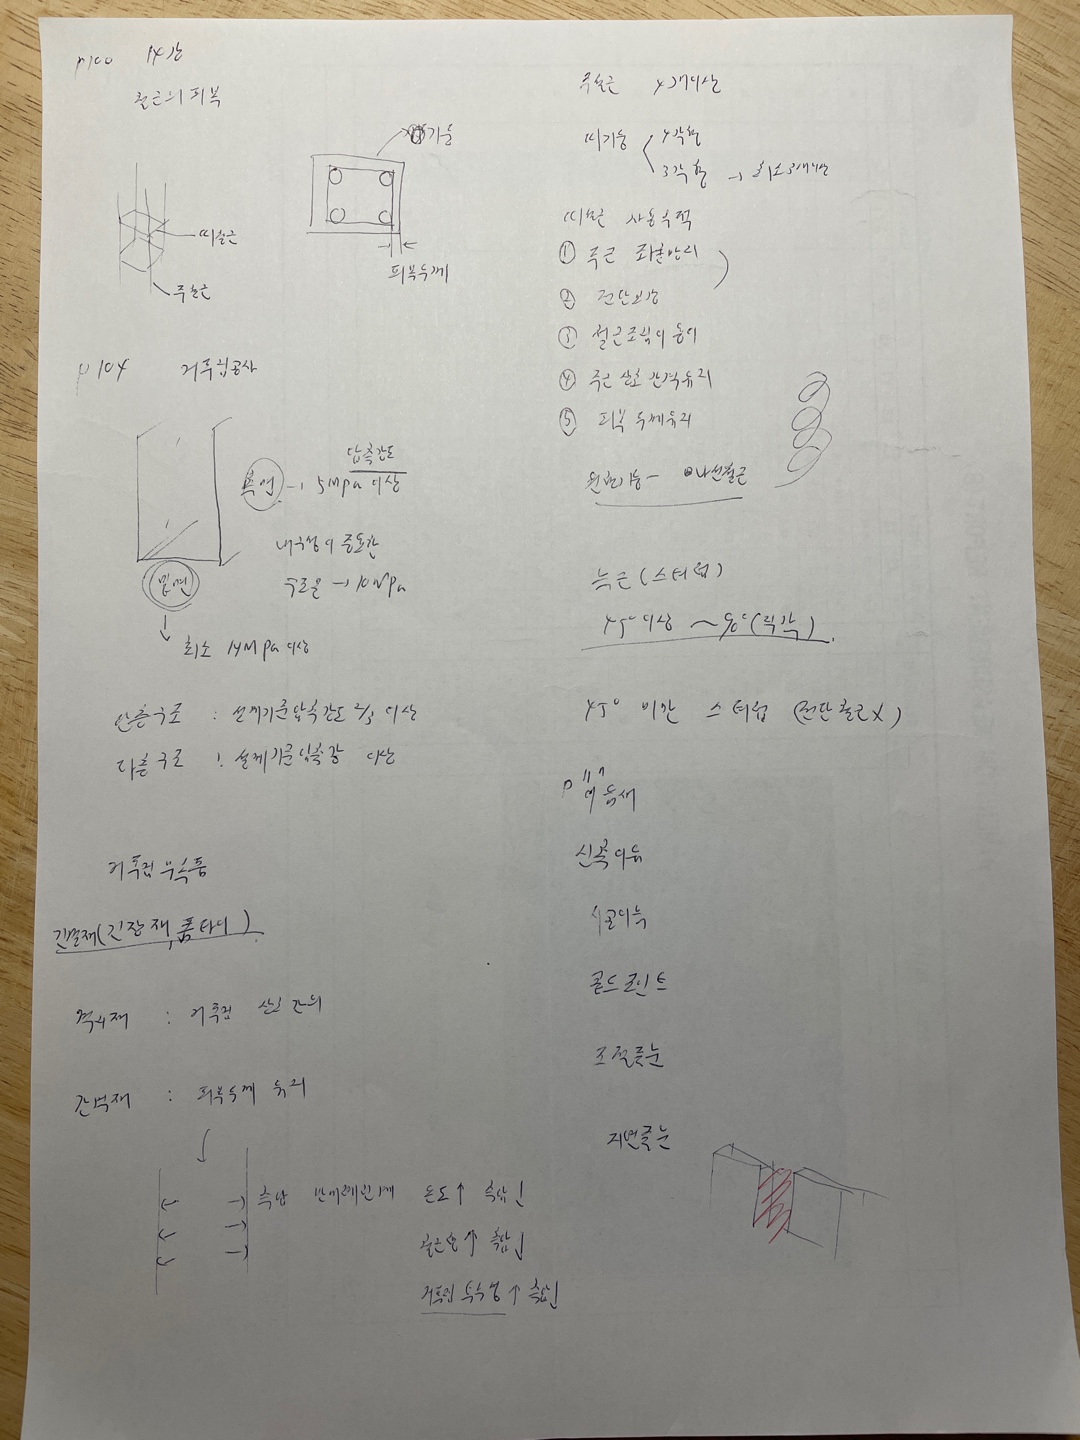 p100 14강
철근의 피복
띠철근
주철근
피복두께
p104 거푸집공사
압축강도
측면 → 5Mpa 이상
내구성이 중요한
구조물 → 10MPa
밑면
↓
최소 14MPa 이상
단층구조 : 설계기준압축강도 2/3 이상
다층구조 : 설계기준압축강 이상
거푸집 부속품
긴결재(긴장재, 폼타이)
격리재 : 거푸집 상호간의
간격재 : 피복두께 유지
측압 반비례관계 온도↑ 측압↓
철근량↑ 측압↓
거푸집 투수성↑ 측압↓
주철근 4개이상
띠기둥 4각형
3각형 → 최소3개이상
띠철근 사용목적
① 주근 좌굴방지
② 전단보강
③ 철근조립이 용이
④ 주근 상호 간격유지
⑤ 피복 두께유지
원형기둥 - 나선철근
늑근(스터럽)
45° 이상 ~ 90°(직각)
45° 미만 스터럽 (전단철근X)
p111
이음새
신축이음
시공이음
콜드조인트
조절줄눈
지연줄눈